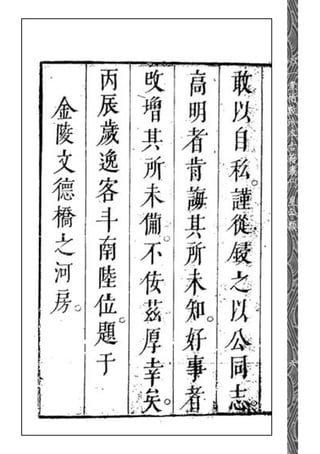 敢以自私。謹從鋟之以公同志。
高明者肯誨其所未知。好事者
攺增其所未俻。不佞茲厚幸矣。
丙辰歲逸客斗南陸位題于
金陵文德橋之河房。